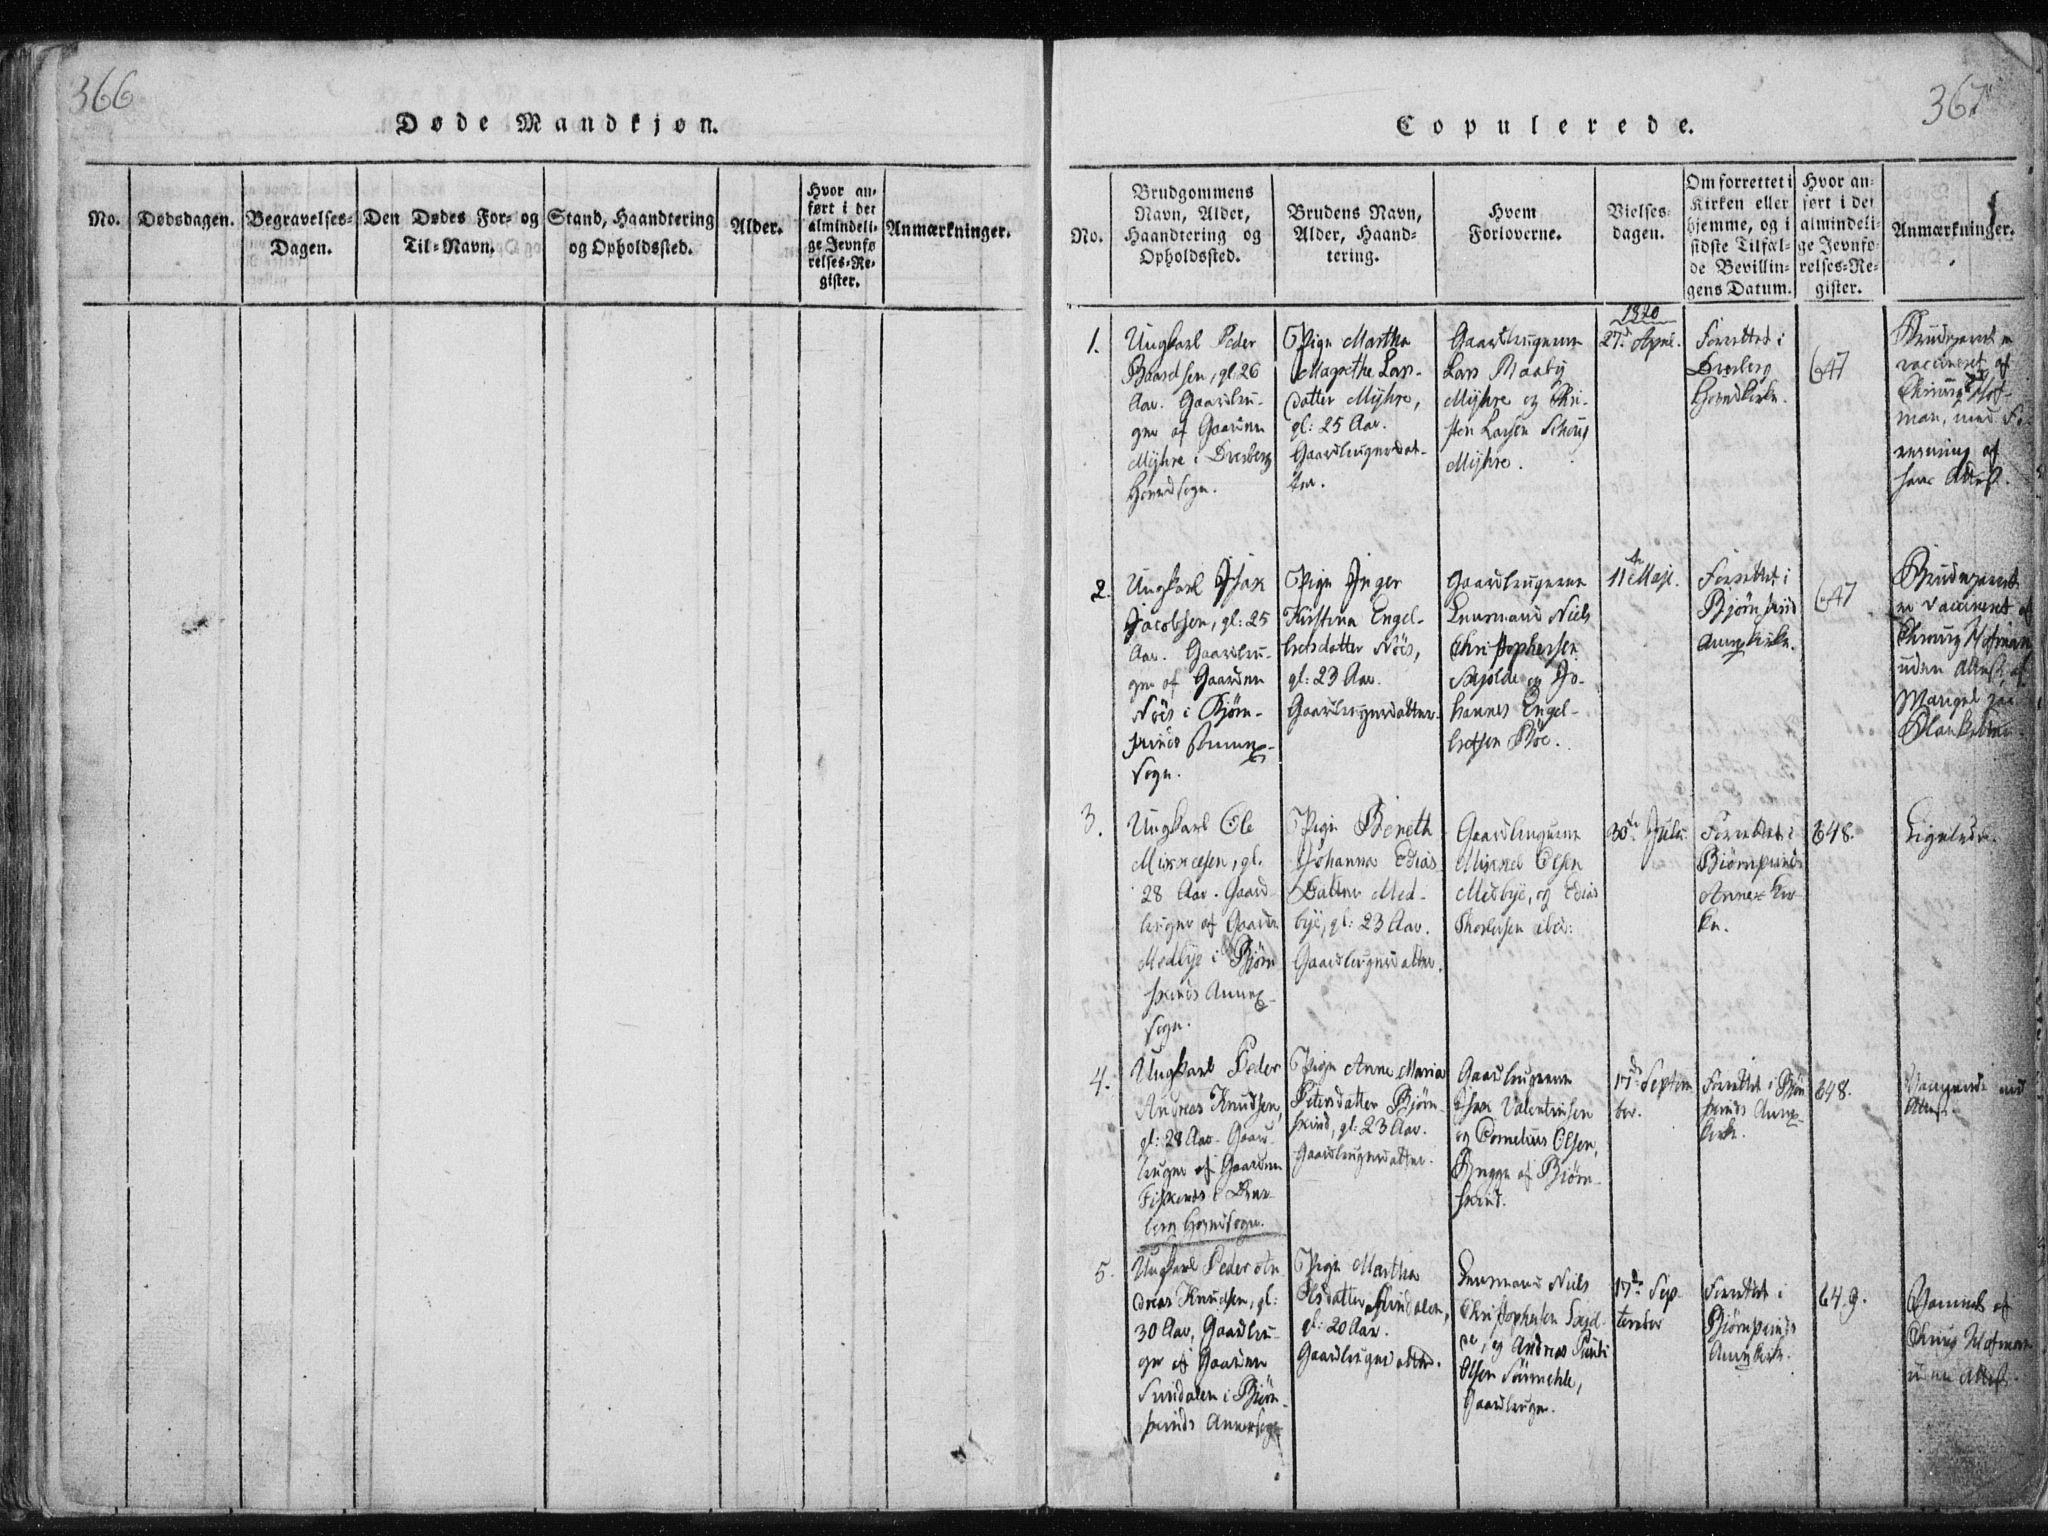 366
Døde Mandkjøn.
No.
Dødsdagen.
Begravelses-
Dagen.
Den Dødes For- og
Til-Navn.
Stand, Haandtering
og Opholdssted.
Alder.
Hvor an-
ført i det
almindeli-
ge Jevnfø
relses-Re-
gister.
Anmærkninger.
367
Copulerede.
No.
Brudgommens
Navn, Alder,
Haandtering og
Opholdssted.
Brudens Navn,
Alder, Haand-
tering.
Hvem
Forloverne.
Vielses-
dagen.
Om forrettet i
Kirken eller
hjemme, og i
sidste Tilfæl-
de Bevillin-
gens Datum.
Hvor an-
ført i det
almindeli-
ge Jevnfø-
relses-Re-
gister.
Anmærkninger.
1.
Ungkarl Peder
Baardsen, gl. 26
Aar. Gaardbru-
ger af Gaarden
Myhre i Dverberg
Hovedsogn.
Pige Martha
Magrethe Lars-
datter Myhre,
gl: 25 Aar.
Gaardbrugerdat-
ter.
Gaardbrugerne
Lars Maaby
Myhre og Chri-
sten Larsen
Myhre.
1820
27de April.
Forrettet i
Dverberg
Hovedkirke.
647
Brudeparret er
vaccineret af
Chirurg Hof-
man, med Fo-
reviisning af
hans Attest.
2.
Ungkarl Isak
Jacobsen, gl: 25
Aar. Gaardbru-
ger af Gaarden
Nöis i Bjørn-
skinds Annex-
Sogn.
Pige Inger
Kirstina Engel-
bretsdatter Nöis,
gl: 23 Aar.
Gaardbrugerdatter.
Gaardbrugerne
Lensmand Niels
Christophersen
og Jo-
hannes Engel-
bretsen Böe.
11te Maji.
Forrettet i
Bjørnskind
Annexkirke.
647
Brudeparret
er vaccineret af
Chirurg Hofman
uden Attest, af
Mangel paa
Blanketter.
3.
Ungkarl Ole
Mikkelsen, gl.
28 Aar. Gaard-
bruger af Gaarden
Medbye i Bjørn
skinds Annex-
sogn.
Pige Bereth
Johanna Edias
Datter Med-
bye, gl: 23 Aar.
Gaardbrugerdatter.
Gaardbrugerne
Mikkel Olsen
Medbye, og Edias
Thorlersen ibid:
30te Julii
Forrettet i
Bjørnskinds
Annex Kir-
ke.
648.
Ligeledes.
4.
Ungkarl Peder
Andreas Knudsen,
gl: 28 Aar. Gaard-
bruger af Gaarden
Fiskenes i Dver-
berg Hovedsogn.
Pige Anne Maria
Petersdatter Bjørn-
skind, gl: 23 Aar.
Gaardbrugerdatter.
Gaardbrugerne
Isak Valentinsen
og Cornelius Olsen,
Begge af Bjørn-
skind.
17de Septem
ber.
Forrettet i Bjørn
skinds Annex-
kirke.
648.
Attest.
5.
Ungkarl Peder An
dreas Knudsen, gl:
30 Aar, Gaardbru-
ger af Gaarden
i Bjørn-
skinds Annexsogn
Pige Martha
gl: 20 Aar.
Gaardbrugerdatter.
Lensmand Niels
Christophersen
og Andreas
Olsen
Gaardbruger.
17de Sep-
tember
Forrettet i
Bjørnskinds
Annexkirke.
649.
af
Chirurg Hofman
uden Attest.